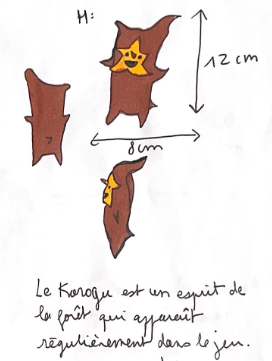 H:
12 cm
8cm
Le Korogu est un esprit de
la forêt qui apparaît
régulièrement dans le jeu.